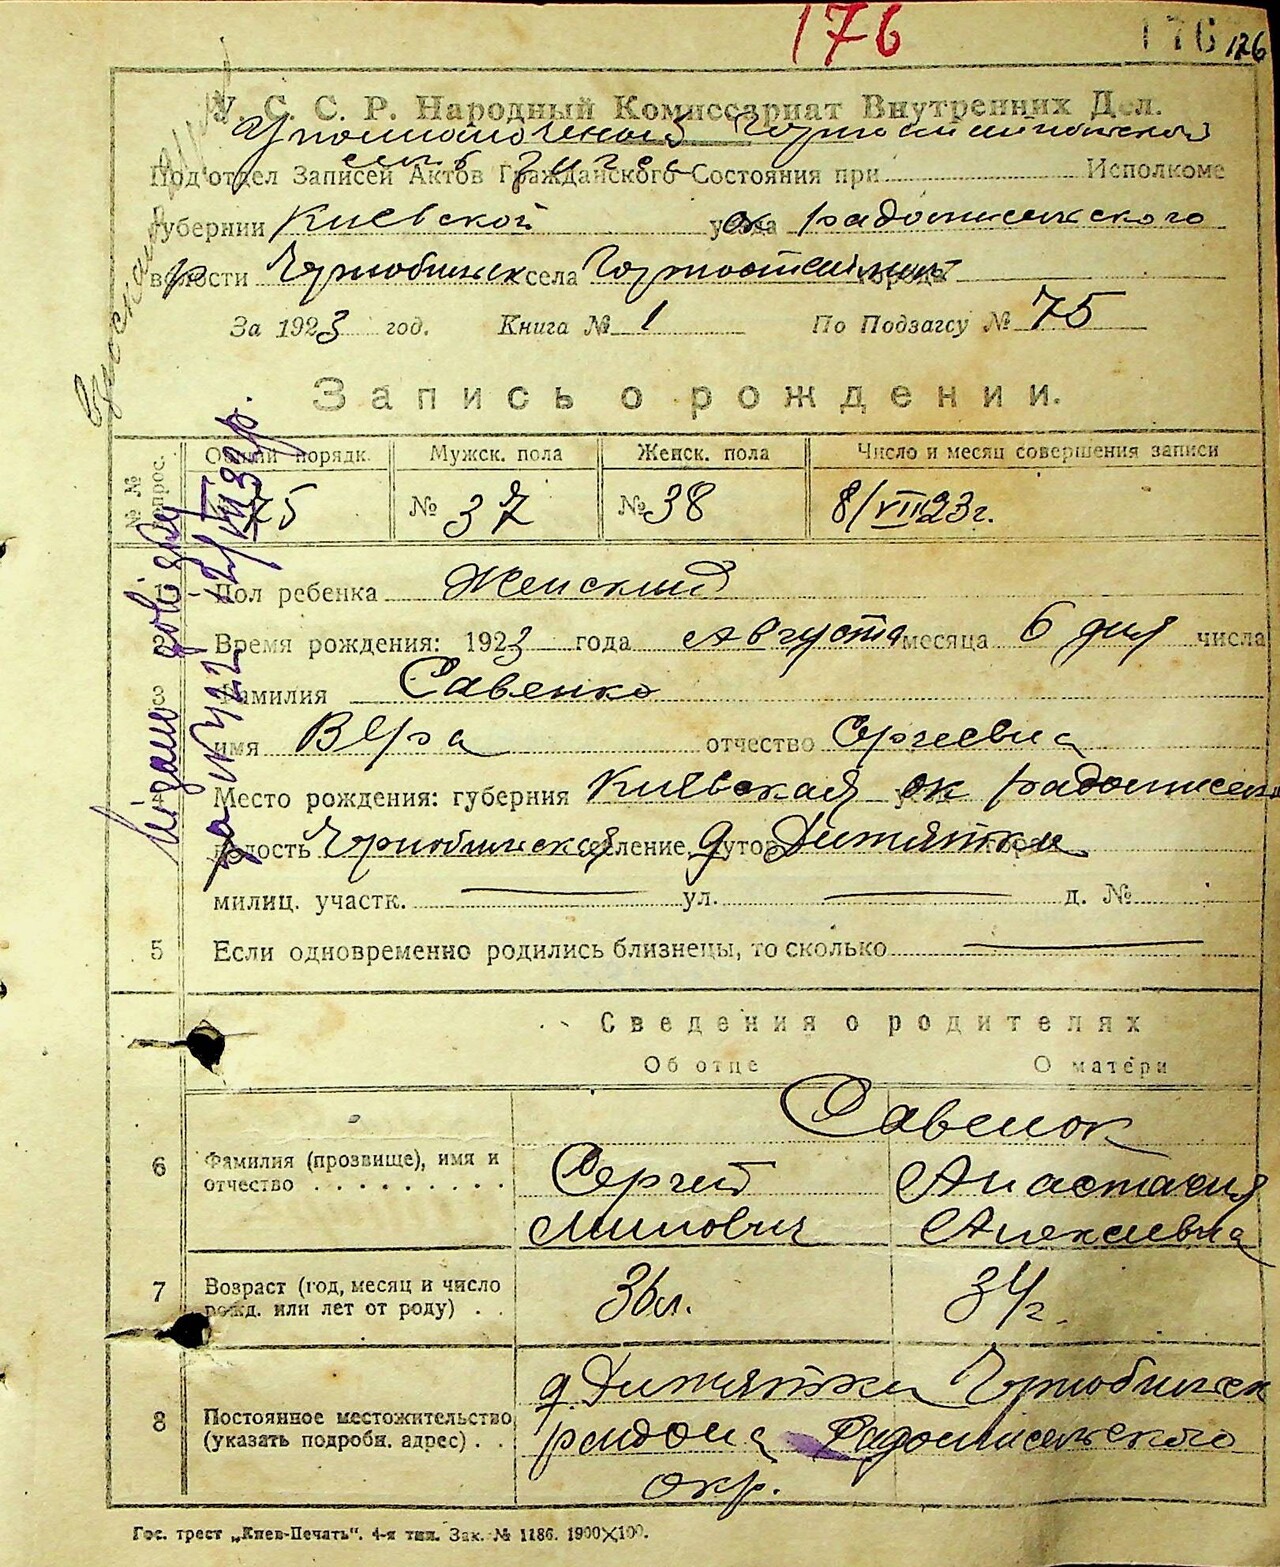 176
176 126
У. С. С. Р. Народный Комиссариат Внутренних Дел.
Уполномоченный Горностайпольской
Под'отдел Записей Актов Гражданского Состояния при Исполкоме
губернии Киевской ок Радомисльского
волости Чернобильск села Горностайполь
За 1923 год. Книга № 1 По Подзагсу № 75
Запись о рождении.
№№ вопрос. Общий порядк. Мужск. пола Женск. пола Число и месяц совершения записи
75 № 37 № 38 8/VIII 23г.
1 Пол ребенка Женский
2 Время рождения: 1923 года Августа месяца 6 дня числа
3 Фамилия Савенко
имя Вера отчество Сергеевна
4 Место рождения: губерния Киевская ок Радомисль
волость Чернобильская селение, хутор д Дитятки
милиц. участк. ул. д. №
5 Если одновременно родились близнецы, то сколько
Сведения о родителях
Об отце О матери
Савенок
6 Фамилия (прозвище), имя и отчество Сергей Анастасия
Алексеевна
7 Возраст (год, месяц и число рожд. или лет от роду) 36л. 34г.
д. Дитятки Чернобильск
8 Постоянное местожительство (указать подробн. адрес) района Радомисельского
окр.
Видано дов
за № 722 12/VIII 39р.
Гос. трест „Киев-Печать“. 4-я тип. Зак. № 1186. 1900×100.